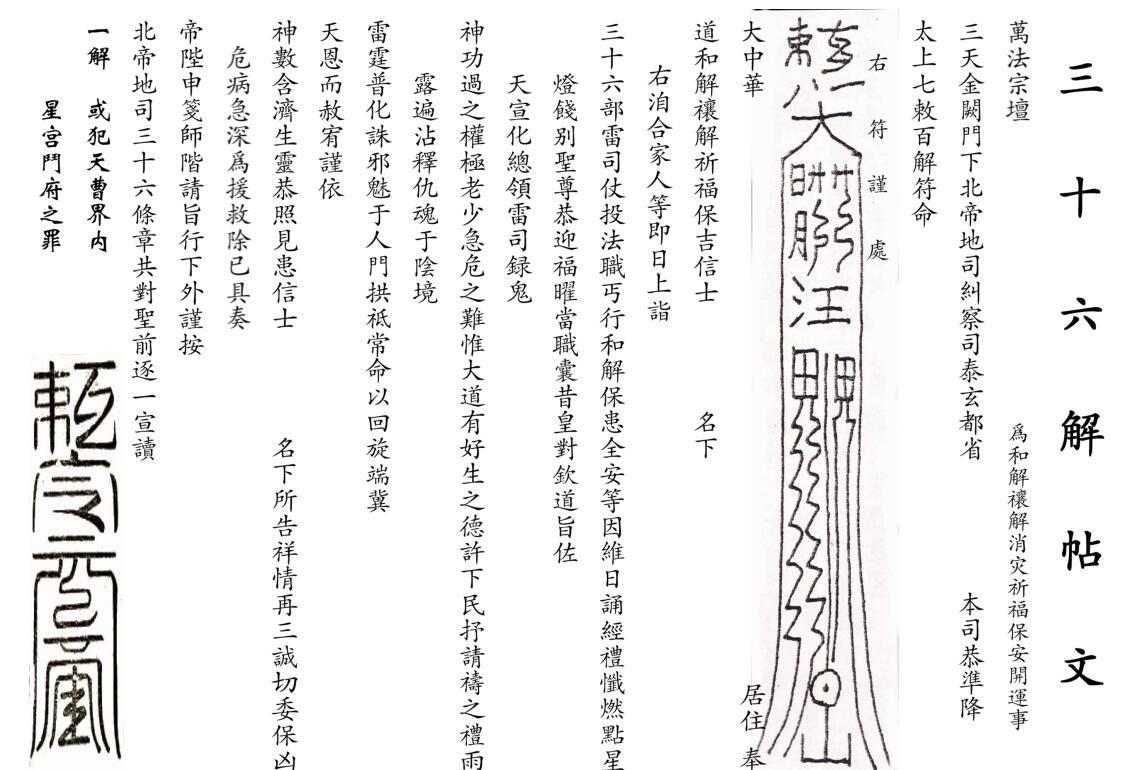 三十六解帖文
萬法宗壇　爲和解禳解消灾祈福保安開運事
三天金闕門下北帝地司糾察司泰玄都省　本司恭準降
太上七敕百解符命
右符謹處
大中華　居住　奉
道和解禳解祈福保吉信士　名下
右洎合家人等即日上詣
三十六部雷司仗投法職丐行和解保患全安等因維日誦經禮懺燃點星
燈餞别聖尊恭迎福曜當職囊昔皇對欽道旨佐
天宣化總領雷司録鬼
神功過之權極老少急危之難惟大道有好生之德許下民抒請禱之禮雨
露遍沾釋仇魂于陰境
雷霆普化誅邪魅于人門拱祗常命以回旋端冀
天恩而赦宥謹依
神數含濟生靈恭照見患信士　名下所告祥情再三誠切委保凶
危病急深爲援救除已具奏
帝陛申箋師階請旨行下外謹按
北帝地司三十六條章共對聖前逐一宣讀
一解　或犯天曹界内
星宫鬥府之罪